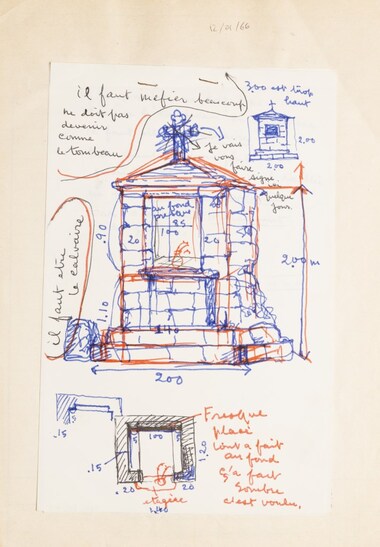 12/01/66
il faut méfier beaucoup
ne doit pas
devenir
comme
le tombeau
3,00 est trop
haut
2,00
2,00
je vais
vous
faire
signe un
quelque
jour
au fond
85
100
20
20
.90
1.10
2.00 m
140
200
il faut être
le calvaire
.15
5
5
100
5
.15
1.20
.20
.20
etagère
140
Fresque
placé
tout a fait
au fond
ça fait
sombre
c'est voulu.